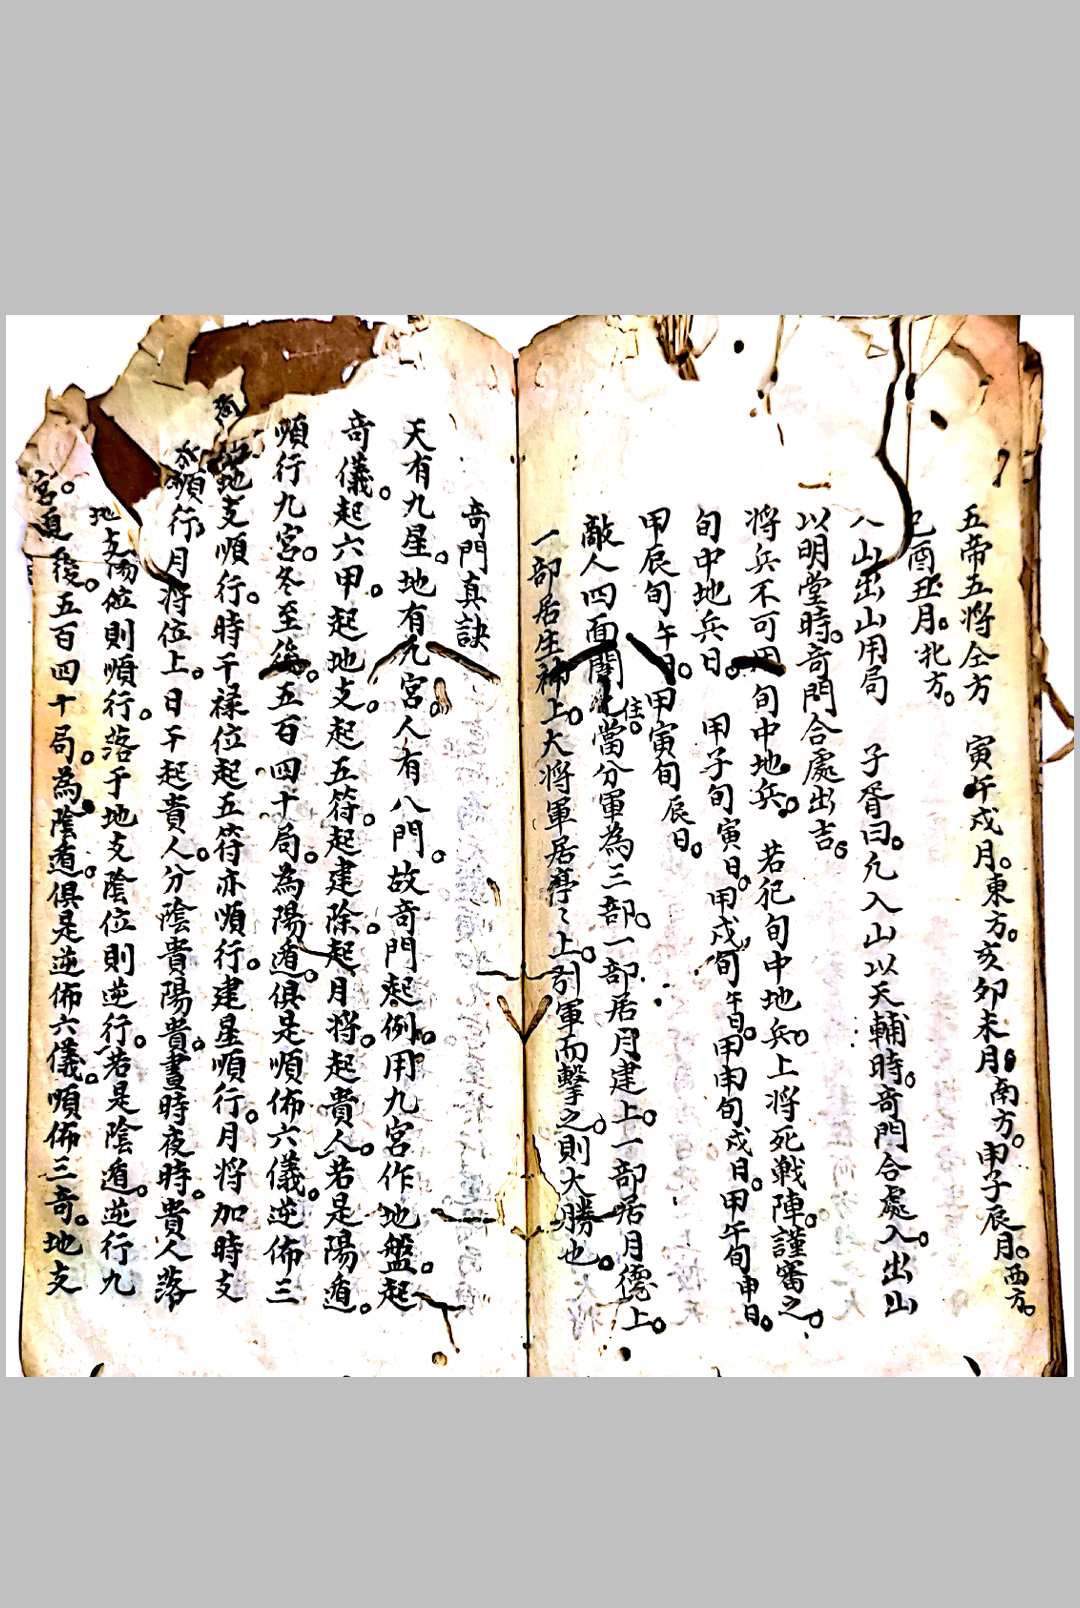 五帝五將全方　寅午戍月。東方。亥卯未月。南方。申子辰月。西方。
巳酉丑月。北方。
入山出山用局　子胥曰。凡入山以天輔時。奇門合處入。出山
以明堂時。奇門合處出吉。
將兵不可用旬中地兵。　若犯旬中地兵。上將死戦陣。謹審之。
旬中地兵日。　甲子旬寅日。甲戍旬午日。甲申旬戍日。甲午旬申日。
甲辰旬午日。甲寅旬辰日。
敵人四面圍住。當分軍為三部。一部居月建上。一部居月德上。
一部居生神上。大將軍居亭々上。引軍而擊之。則大勝也。
奇門真訣
天有九星。地有九宮。人有八門。故奇門起例。用九宮作地盤。起
奇儀。起六甲。起地支。起五符。起建除。起月將。起貴人。若是陽遁。
順行九宮。冬至後。五百四十局。為陽遁。俱是順佈六儀。逆佈三
奇地支順行。時干祿位起五符亦順行。建星順行。月將加時支
順行。月將位上。日干起貴人。分陰貴陽貴。晝時夜時。貴人落
地支陽位則順行。落于地支陰位則逆行。若是陰遁。逆行九
宮。夏至後。五百四十局。為陰遁。俱是逆佈六儀。順佈三奇。地支